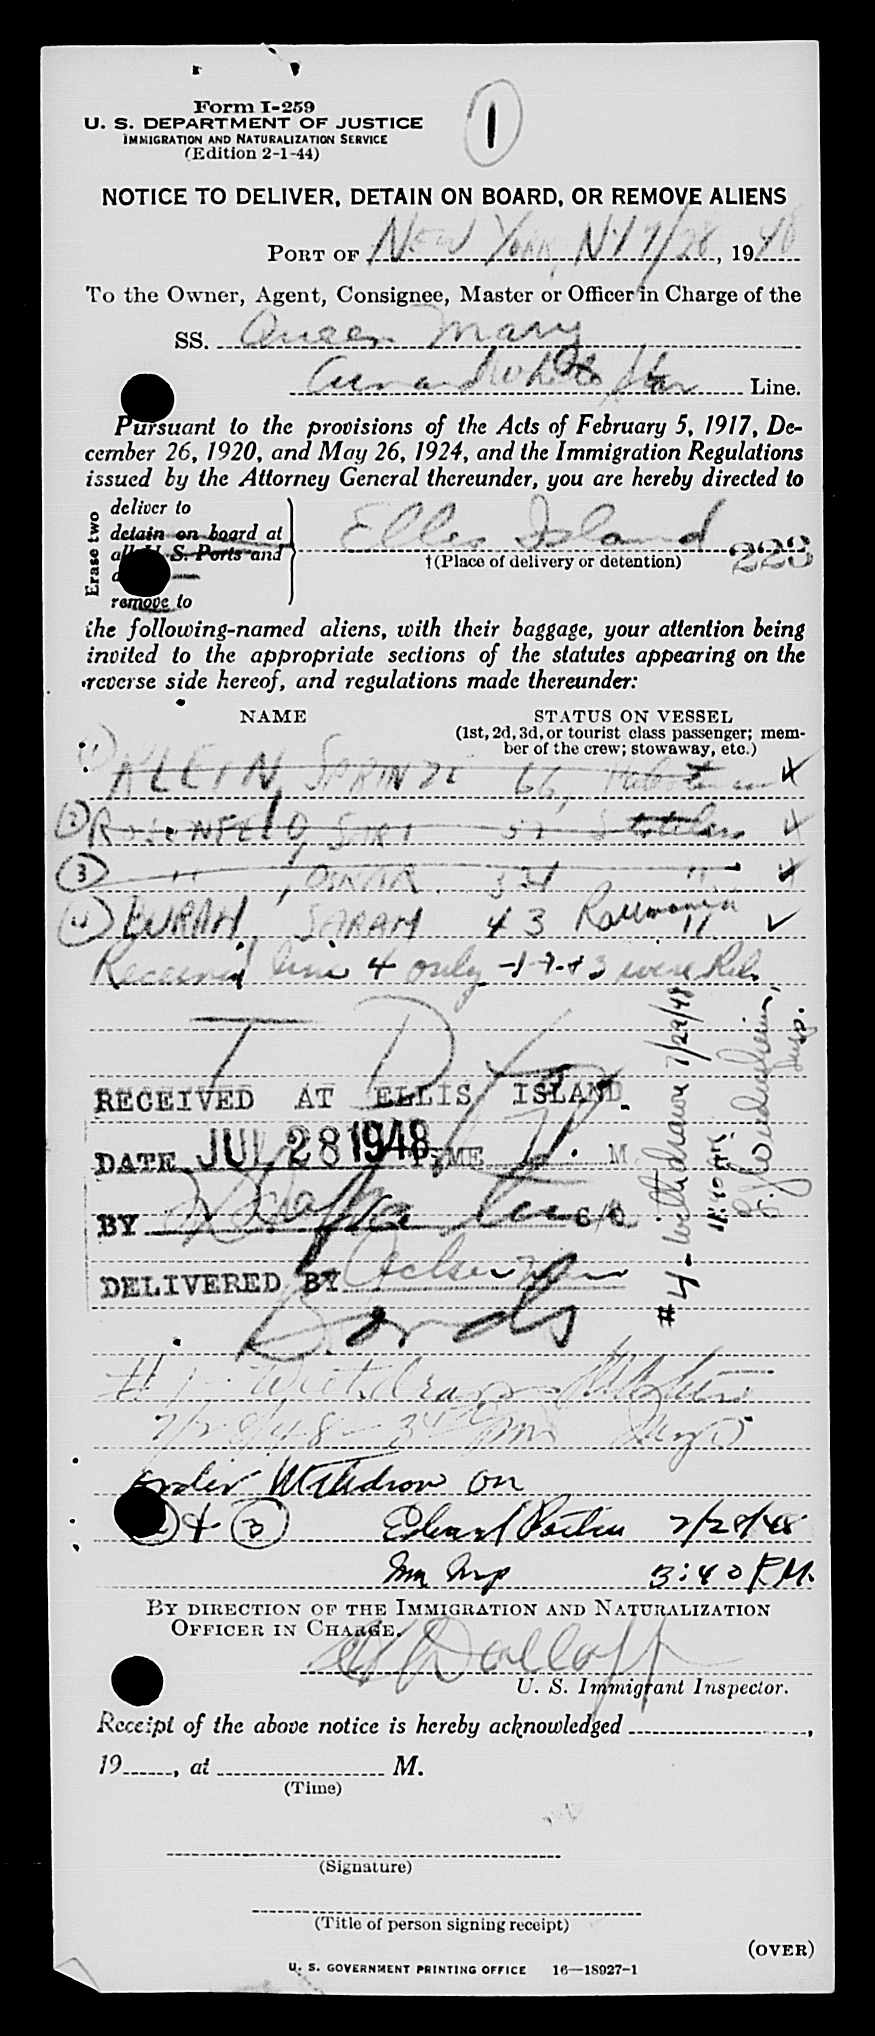 1
Form I-259
U. S. DEPARTMENT OF JUSTICE
IMMIGRATION AND NATURALIZATION SERVICE
(Edition 2-1-44)
NOTICE TO DELIVER, DETAIN ON BOARD, OR REMOVE ALIENS
PORT OF New York, NY 7/28, 1948
To the Owner, Agent, Consignee, Master or Officer in Charge of the
SS. Queen Mary
Cunard White Star Line.
Pursuant to the provisions of the Acts of February 5, 1917, De-
cember 26, 1920, and May 26, 1924, and the Immigration Regulations
issued by the Attorney General thereunder, you are hereby directed to
Erase two
deliver to
detain on board at
all U. S. Ports and
remove to
Ellis Island
†(Place of delivery or detention)
223
the following-named aliens, with their baggage, your attention being
invited to the appropriate sections of the statutes appearing on the
reverse side hereof, and regulations made thereunder:
NAME
STATUS ON VESSEL
(1st, 2d, 3d, or tourist class passenger; mem-
ber of the crew; stowaway, etc.)
(1) KLEIN, SPRINZE 66,
(2) ROSENFELD, SARI 51 Stateless
(3) " , OSKAR 54 "
(4) BURAH, SARAH 43 Roumania "
Received line 4 only -1-2-+3 were Rel.
T D
RECEIVED AT ELLIS ISLAND
DATE JUL 28 1948 TIME P. M
BY
DELIVERED BY
Bonds
#4 - Withdrawn 7/29/48
Insp.
#1 - Withdrawn
7/28/48 - 3 pm Insp
order Withdrawn on
2 & 3 7/28/48
Imm Insp 3:40 P.M.
BY DIRECTION OF THE IMMIGRATION AND NATURALIZATION
OFFICER IN CHARGE.
U. S. Immigrant Inspector.
Receipt of the above notice is hereby acknowledged ,
19 , at M.
(Time)
(Signature)
(Title of person signing receipt)
(OVER)
U. S. GOVERNMENT PRINTING OFFICE 16—18927-1